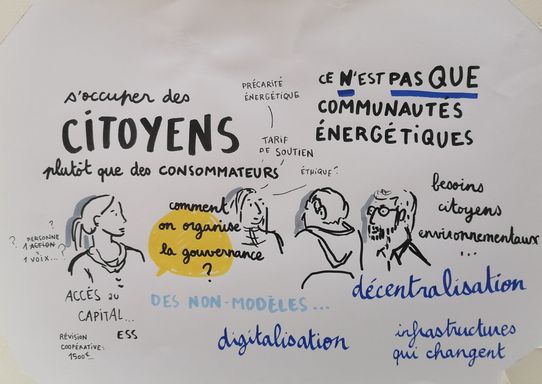 s'occuper des
CITOYENS
plutôt que des CONSOMMATEURS
PRÉCARITÉ
ÉNERGÉTIQUE
TARIF
DE SOUTIEN
ÉTHIQUE?
CE N'EST PAS QUE
COMMUNAUTÉS
ÉNERGÉTIQUES
comment
on organise
la gouvernance
?
besoins
citoyens
environnementaux
...
? PERSONNE ?
1 VOIX...
ACCÈS AU
CAPITAL...
ESS
RÉVISION
COOPÉRATIVE:
1500€
DES NON-MODÈLES...
digitalisation
décentralisation
infrastructures
qui changent